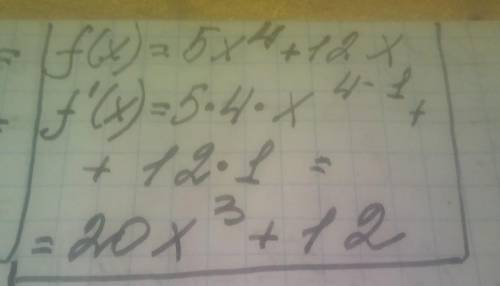 f(x) = 5x⁴ + 12x
f'(x) = 5·4·x⁴⁻¹ +
+ 12·1 =
= 20x³ + 12